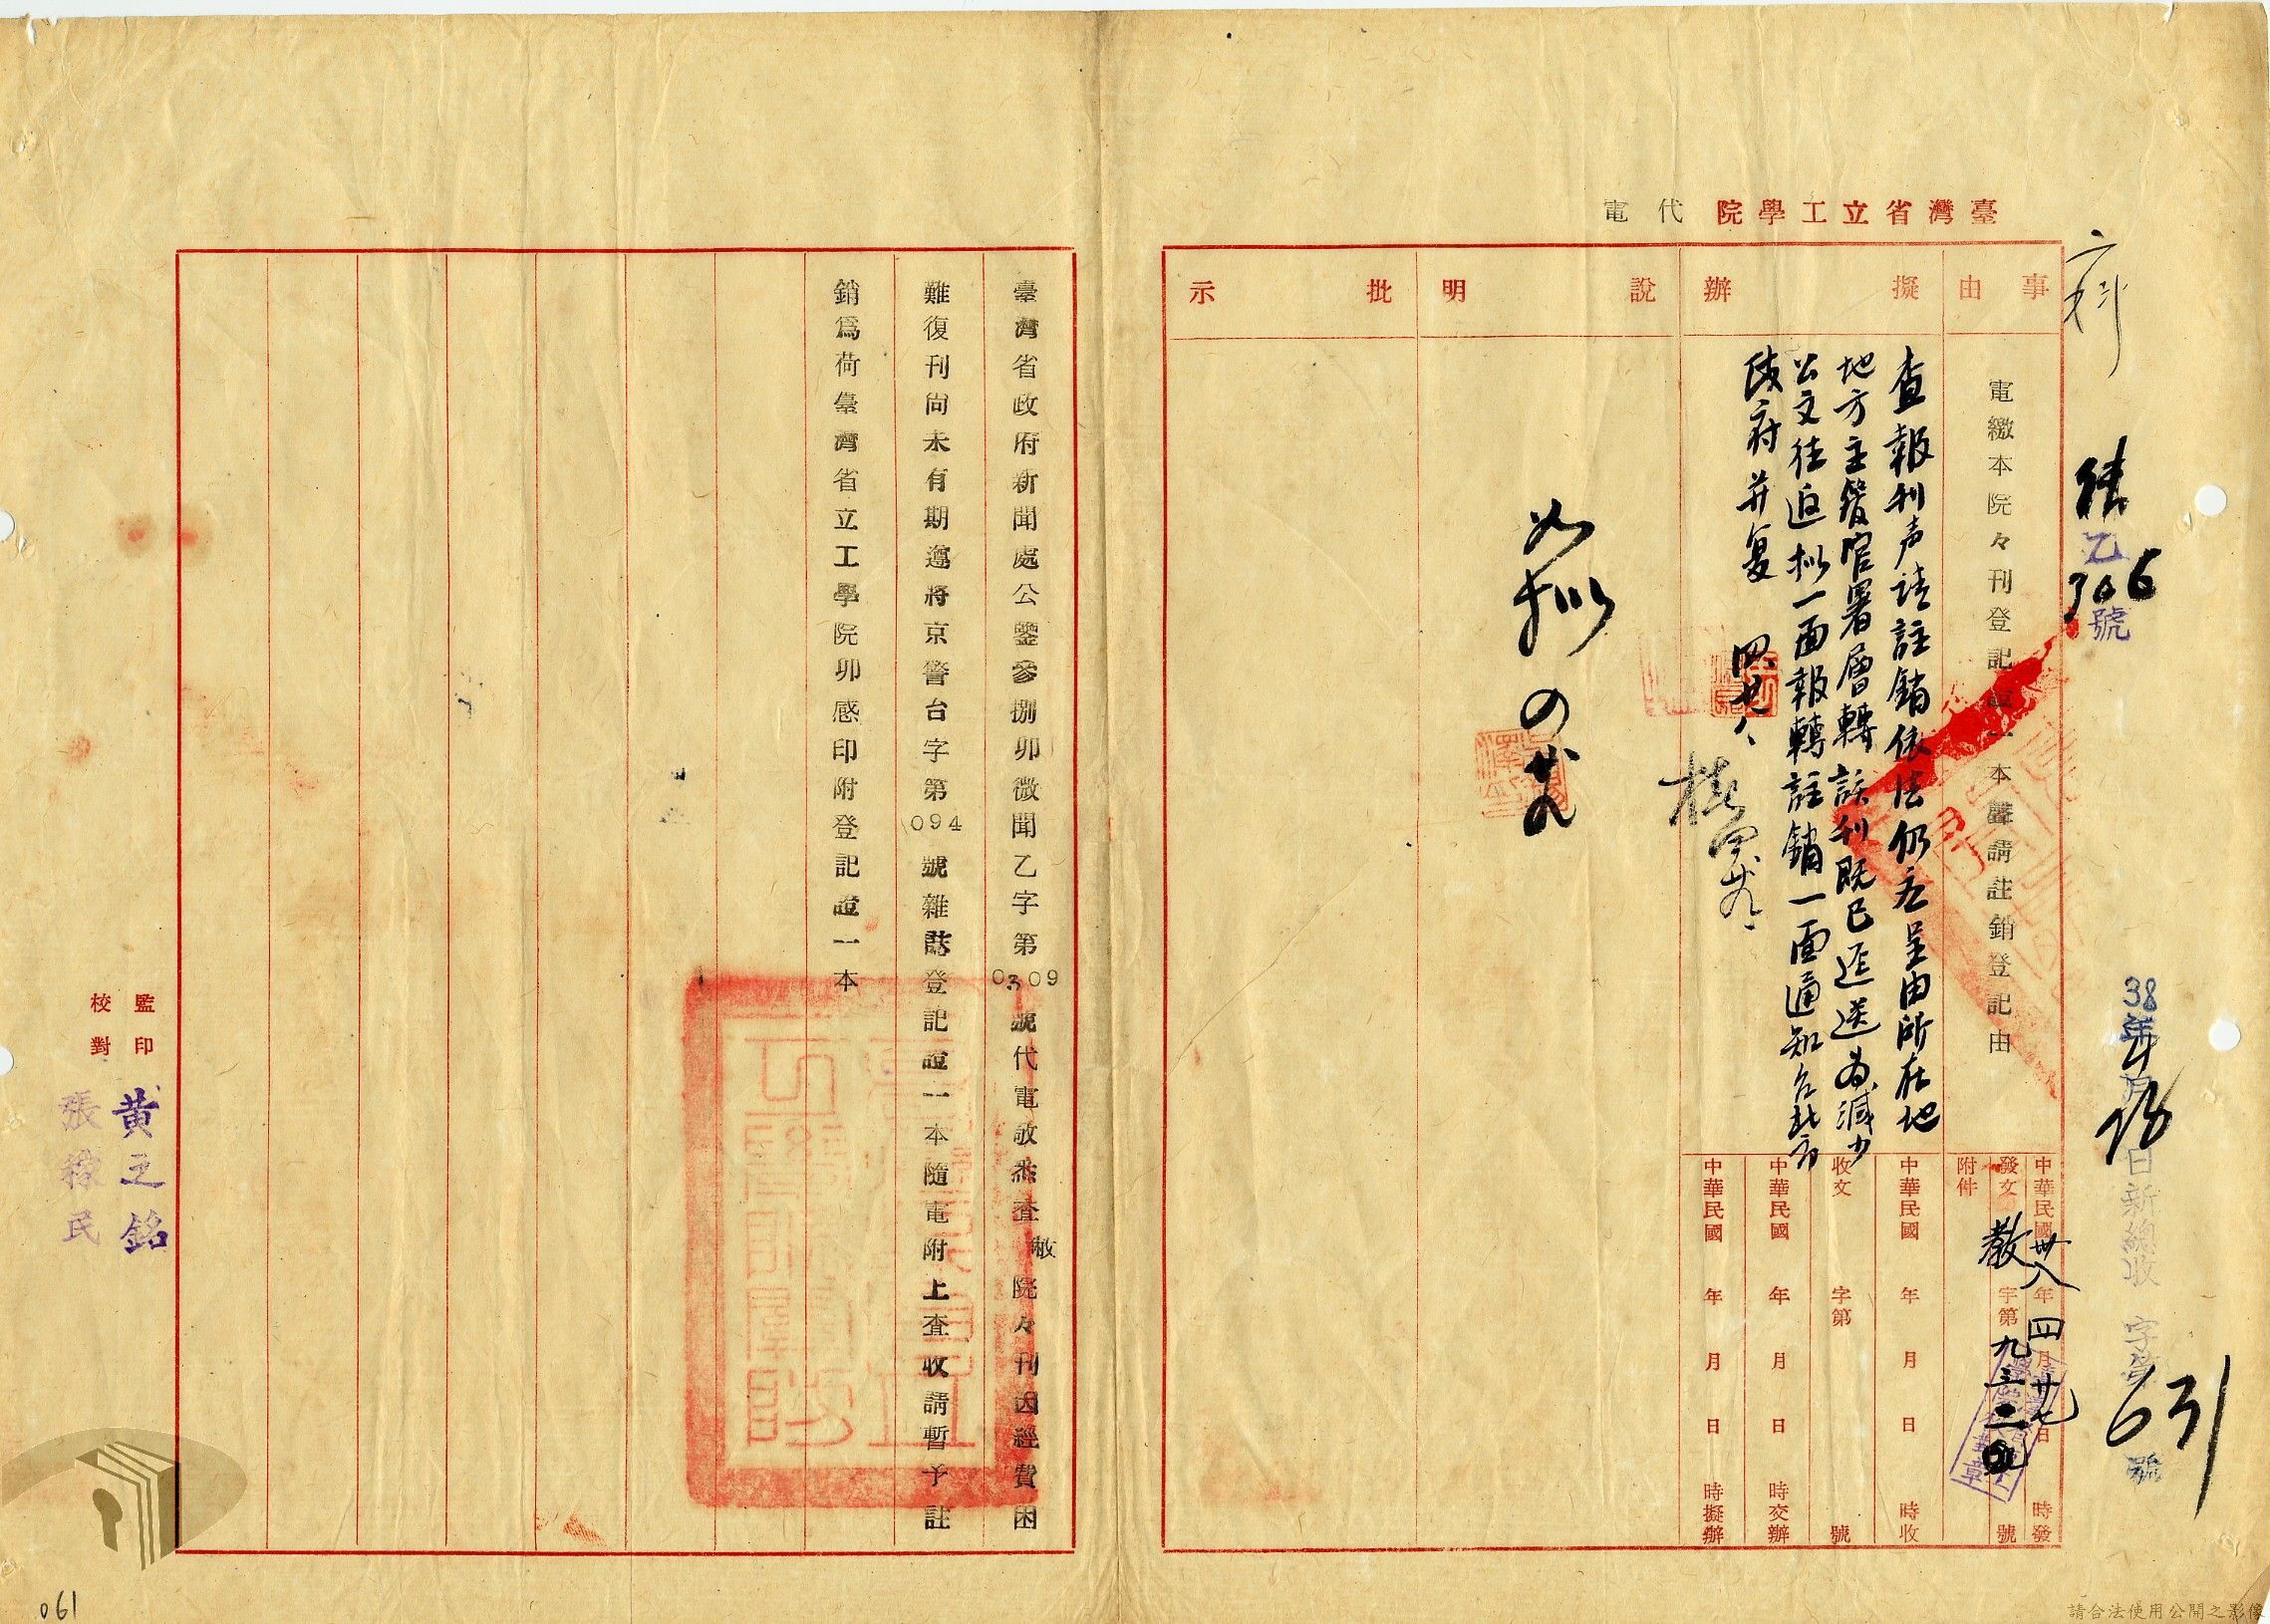 臺灣省立工學院代電
事由
擬辦
說明
批示
電繳本院々刊登記證一本聲請註銷登記由
中華民國卅八年四月廿七日 時發
發文教字第九三二 號
附件
中華民國 年 月 日 時收
收文 字第 號
中華民國 年 月 日 時交辦
中華民國 年 月 日 時擬辦
38年4月28日新總收 字第631號
乙306號
查報刊声請註銷依法仍应呈由所在地
地方主管官署層轉該刊既已逕送為減少
公文往返拟一面報轉註銷一面通知台北市
政府并复 四、廿八
如拟
臺灣省政府新聞處公鑒參捌卯微聞乙字第0309號代電敬悉查敝院々刊因經費困
難復刊尙未有期遵將京警台字第094號雜誌登記證一本隨電附上查收請暫予註
銷爲荷臺灣省立工學院卯感印附登記證一本
監印 黃之銘
校對 張 民
061
請合法使用公開之影像